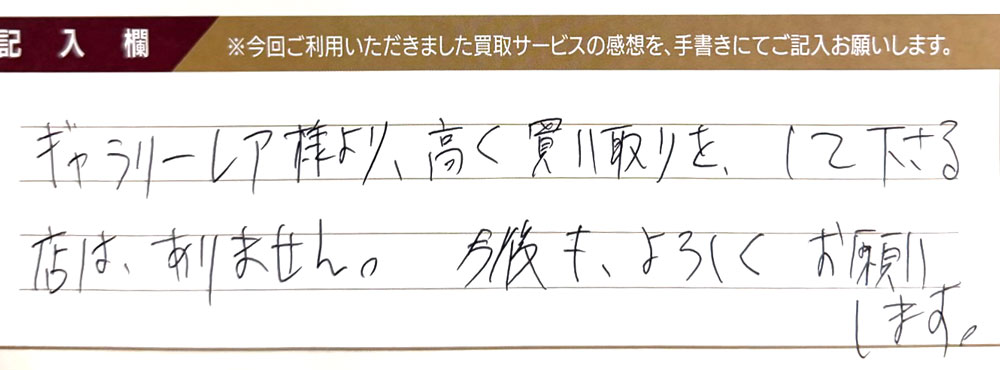 記入欄 ※今回ご利用いただきました買取サービスの感想を、手書きにてご記入お願いします。
ギャラリーレア様より、高く買い取りを、して下さる
店は、ありません。 今後も、よろしくお願い
します。